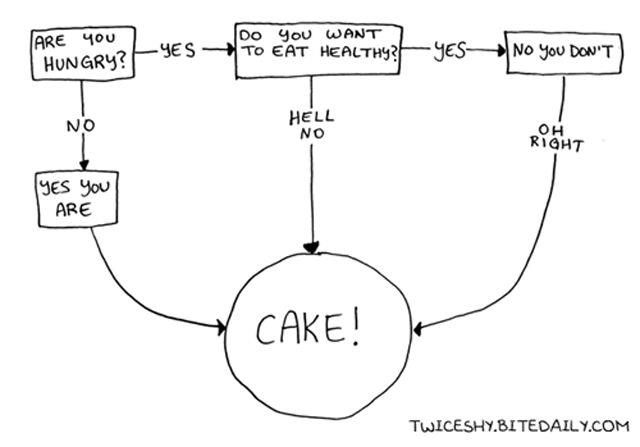 ARE YOU
HUNGRY?
YES
DO YOU WANT
TO EAT HEALTHY?
YES
NO YOU DON'T
NO
HELL
NO
OH
RIGHT
YES YOU
ARE
CAKE!
TWICESHY.BITEDAILY.COM